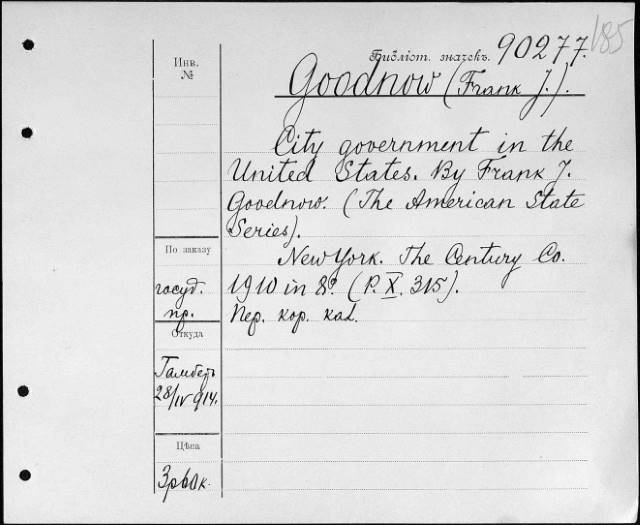 185
Библіот. значекъ. 90277.
Инв.
№
Goodnow (Frank J.).
City government in the
United States. By Frank J.
Goodnow. (The American State
Series).
По заказу
New York. The Century Co.
госуд.
пр.
1910 in 8º. (P. X. 315).
Пер. кор. кал.
Откуда
Гамберъ
28/IV 914.
Цѣса
3р60к.